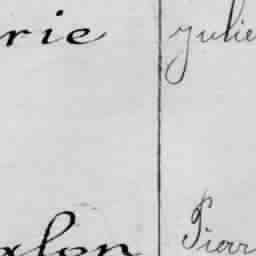 rie
Julie
alon
Pierr